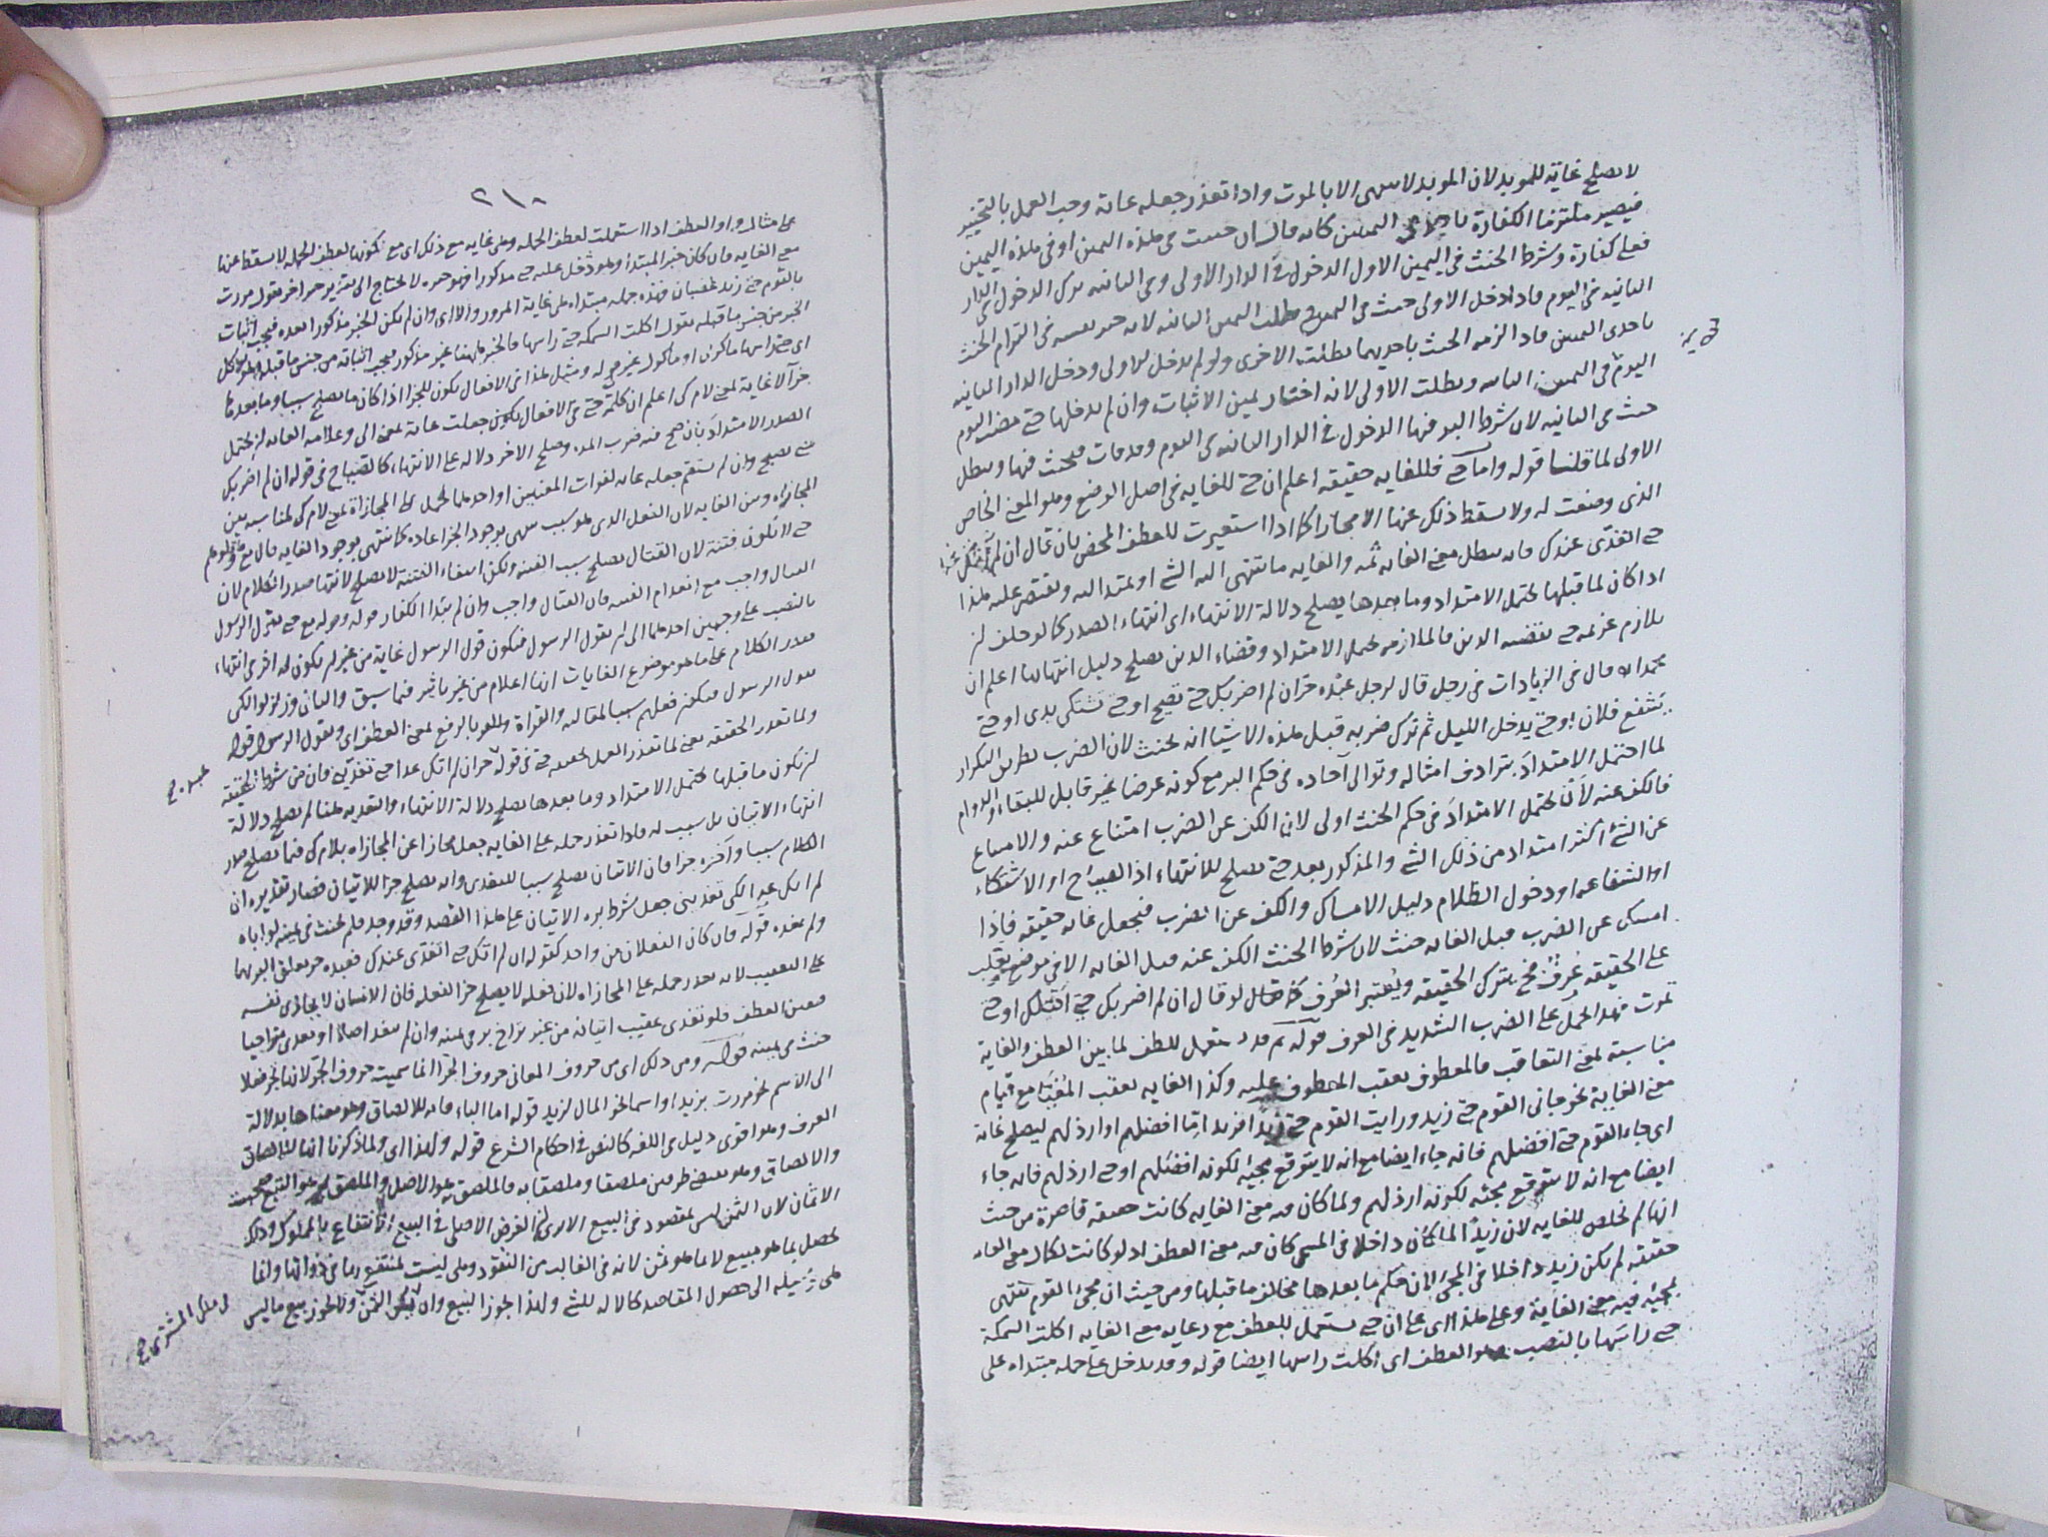 لا يصلح غاية للموبد لان الموبد لا ينتهي الا بالموت واذا تعذر جعله غاية وجب العمل بالتخيير
فيصير ملتزما الكفارة باحدى اليمينين كانه قال ان حنثت في هذه اليمين او في هذه اليمين
فعلي كفارة وشرط الحنث في اليمين الاول الدخول في الدار الاولى وفي الثانيه ترك الدخول في الدار
الثانيه في اليوم فاذا دخل الاولى حنث في اليمين وبطلت اليمين الثانيه لانه خير نفسه في التزام الحنث
باحدى اليمينين فاذا لزمه الحنث باحديهما بطلت الاخرى ولو لم يدخل الاولى ودخل الدار الثانيه
اليوم في اليمين الثانيه وبطلت الاولى لانه اختار يمين الاثبات وان لم يدخلها حتى مضت اليوم
حنث في الثانيه لان شرط البر فيها الدخول في الدار الثانيه في اليوم وقد فات فيحنث فيها وبطل
الاولى لما قلنا قوله واما حتى فللغايه حقيقه اعلم ان حتى للغايه في اصل الوضع وهو المعنى الخاص
الذي وضعت له ولا يسقط ذلك عنها الا مجازا كما اذا استعيرت للعطف المحض بان قال ان لم
حتى اتغدى عندك فانه يبطل معنى الغايه ثمه والغايه ما ينتهي اليه الشي او يمتد اليه ويقتصر عليه هذا
اذا كان لما قبلها يحتمل الامتداد وما بعدها يصلح دلالة الانتهاء اي انتهاء الصدر كما لو حلف ان
يلازم غريمه حتى يقضيه الدين فالملازمه يحتمل الامتداد وقضاء الدين يصلح دليل انتهائها اعلم ان
محمدا قال في الزيادات في رجل قال لرجل عبده حر ان لم اضربك حتى تصيح او حتى تشتكي يدي او حتى
يشفع فلان او حتى يدخل الليل ثم ترك ضربه قبل هذه الاشيا انه يحنث لان الضرب بطريق التكرار
لما احتمل الامتداد بترادف امثاله وتوالي آحاده في حكم البر مع كونه عرضا غير قابل للبقاء والدوام
فالكف عنه لان يحتمل الامتداد في حكم الحنث اولى لان الكف عن الضرب امتناع عنه والامتناع
عن الشي اكثر امتداد من ذلك الشي والمذكور بعد حتى يصلح للانتهاء اذ الصياح او الاشتكاء
او الشفاعه او دخول الظلام دليل الامساك والكف عن الضرب فيجعل غايه حقيقه فاذا
امسك عن الضرب قبل الغايه حنث لان شرط الحنث الكف عنه قبل الغايه الا في موضع يغلب
على الحقيقه عرف فحينئذ يترك الحقيقه ويعتبر العرف كما لو قال ان لم اضربك حتى اقتلك او حتى
تموت فهذا يحمل على الضرب الشديد في العرف قوله ثم قد يستعمل للعطف لما بين العطف والغاية
مناسبة لمعنى التعاقب فالمعطوف يعقب المعطوف عليه وكذا الغايه يعقب المغيا مع قيام
معنى الغاية نحو جاني القوم حتى زيد ورايت القوم حتى زيدا فزيد اما افضلهم او ارذلهم ليصلح غاية
اي جاء القوم حتى افضلهم فانه جاء ايضا مع انه لا يتوقع مجيئه لكونه افضلهم او حتى ارذلهم فانه جاء
ايضا مع انه لا يتوقع مجيئه لكونه ارذلهم ولما كان فيه معنى الغايه كانت حقيقه قاصرة من حيث
انها لم تخلص للغايه لان زيدا لما كان داخلا في المجيء كان فيه معنى العطف اذ لو كانت لكمال معنى الغايه
حقيقه لم يكن زيد داخلا في المجيء لان حكم ما بعدها مخالف ما قبلها ومن حيث ان مجيء القوم ينتهي
بمجيئه فيه معنى الغاية وعلى هذا اي على ان حتى يستعمل للعطف مع رعاية معنى الغايه اكلت السمكة
حتى راسها بالنصب وهو العطف اي اكلت راسها ايضا قوله وقد يدخل على جمله مبتداه على
٢١٠
على مثال واو العطف اذا استعملت لعطف الجمله وهي غايه مع ذلك اي مع كونها لعطف الجمله لا يسقط عنها
معنى الغايه فان كان خبر المبتدأ وهو دخل عليه حتى مذكورا فهو خبره لا يحتاج الى تقدير خبر اخر يقول مررت
بالقوم حتى زيد غضبان فهذه جمله مبتداه هي غاية المرور والا اي وان لم يكن الخبر مذكورا بعده فيجب اثبات
الخبر من جنس ما قبله يقول اكلت السمكه حتى راسها فالخبر هاهنا غير مذكور فيجب اثباته من جنس ما قبله
اي حتى راسها ماكول او ماكول غيري له ومثل هذا في الافعال يكون للجزا اذا كان ما يصلح سببا وما بعدها
جزآ لا غاية بمعنى لام كي اعلم ان كلمة حتى في الافعال يكون جعلت غاية بمعنى الى وعلامه الغايه ان يحتمل
الصدر الامتداد بان صح فيه ضرب المده وصلح الاخر دلاله على الانتهاء كالصياح في قوله ان لم اضربك
حتى تصيح وان لم يستقم جعله غايه لفوات المعنيين او احدهما يحمل على المجازاة بمعنى لام كي لمناسبه بين
المجازاه وبين الغايه لان الفعل الذي هو سبب ينتهي بوجود الجزا عاده كما ينتهي بوجود الغايه قال تع وقاتلوهم
حتى لا تكون فتنة لان القتال يصلح سبب الفتنه ولكن انتفاء الفتنة لا يصلح لانتها صدر الكلام لان
القتال واجب مع انعدام الفتنه فان القتال واجب وان لم يبدا الكفار قوله وقوله تع حتى يقول الرسول
بالنصب على وجهين احدهما الى ان يقول الرسول فيكون قول الرسول غاية من غير ان يكون له اثر في انتهاء
صدر الكلام على ما هو موضوع الغايات انها اعلام من غير تاثير فيما سبق والثاني وزلزلوا لكي
يقول الرسول فيكون فعلهم سببا لمقاله والقراة بالرفع بمعنى العطف اي ويقول الرسول قوله
ولما تعذر الحقيقه يعني لما تعذر العمل بحقيقه حتى في قوله حر ان لم اتك غدا حتى تغديني فان من شرط الحقيقه
ان يكون ما قبلها يحتمل الامتداد وما بعدها يصلح دلالة الانتهاء والتغديه هنا لم يصلح دلالة
انتهاء الاتيان بل سبب له فاذا تعذر حمله على الغايه جعل مجازا عن المجازاه بلام كي فيما يصلح صدر
الكلام سببا وآخره جزا فان الاتيان يصلح سببا للتغدي وانه يصلح جزا للاتيان فصار تقديره ان
لم اتك غدا لكي تغديني جعل شرط بره الاتيان على هذا القصد وقد وجد فلم يحنث في يمينه لو اتاه
ولم يغده قوله فان كان الفعلان من واحد كقوله ان لم اتك حتى اتغدى عندك فعبده حر يعلق البر بهما
على التعقيب لانه تعذر حمله على المجازاه لان فعله لا يصلح جزا لفعله فان الانسان لا يجازي نفسه
فتعين العطف فلو تغدى عقيب اتيانه من غير تراخ بر في يمينه وان لم يتغد اصلا او تغدى متراخيا
حنث في يمينه قوله ومن ذلك اي من حروف المعاني حروف الجر انما سميت حروف الجر لانها تجر فعلا
الى الاسم نحو مررت بزيد او اسما نحو المال لزيد قوله اما الباء فانه للالصاق وهو معناها بدلالة
العرف وهو اقوى دليل في اللغه كالنص في احكام الشرع قوله ولهذا اي ولما ذكرنا انها للالصاق
والالصاق وهو يقتضي طرفين ملصقا وملصقا به فالملصق به هو الاصل والملصق هو التبع صحبت
الاثمان لان الثمن ليس بمقصود في البيع الا يرى ان الغرض الاصلي في البيع الانتفاع بالمملوك وذلك
يحصل بما هو مبيع لا بما هو ثمن لانه في الغالب من النقود وهي ليست بمنتفع بها في ذواتها وانما
هي وسيلة الى حصول المقاصد كالاله للشي ولهذا يجوز البيع وان لم يكن الثمن ولا يجوز بيع ما ليس
في ملك المشتري